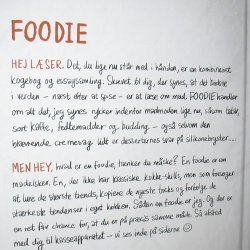 FOODIE
HEJ LÆSER. Det, du lige nu står med i hånden, er en kombineret
kogebog og essaysamling. Skrevet til dig, der synes, at det bedste
i verden – næst efter at spise – er at læse om mad. FOODIE handler
om alt det, jeg synes rykker indenfor madmoden lige nu, såsom tatar,
sort kaffe, fedtemadder og budding – også selvom den
brændende cremevag indt os desserternes svar på silikonebryster...
MEN HEY, hvad er en foodie, tænker du måske? En foodie er en
madelsker. En, der ikke har klassiske kokke-skills, men som forsøger
at lure de største trends, kopiere de nyeste fads og forfølge de
stærkeste tendenser i eget køkken. Sådan en foodie er jeg. Og der er
en ret stor chance for, at du er på præcis samme måde. Så skænk
med dig til kasseapparatet – vi ses inde på siderne ☺